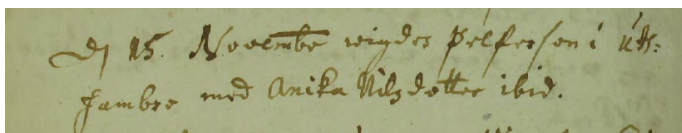 D 15. Novembr wigdes Pelferson i Uth:
hambre med Anika Nilsdotter ibid.